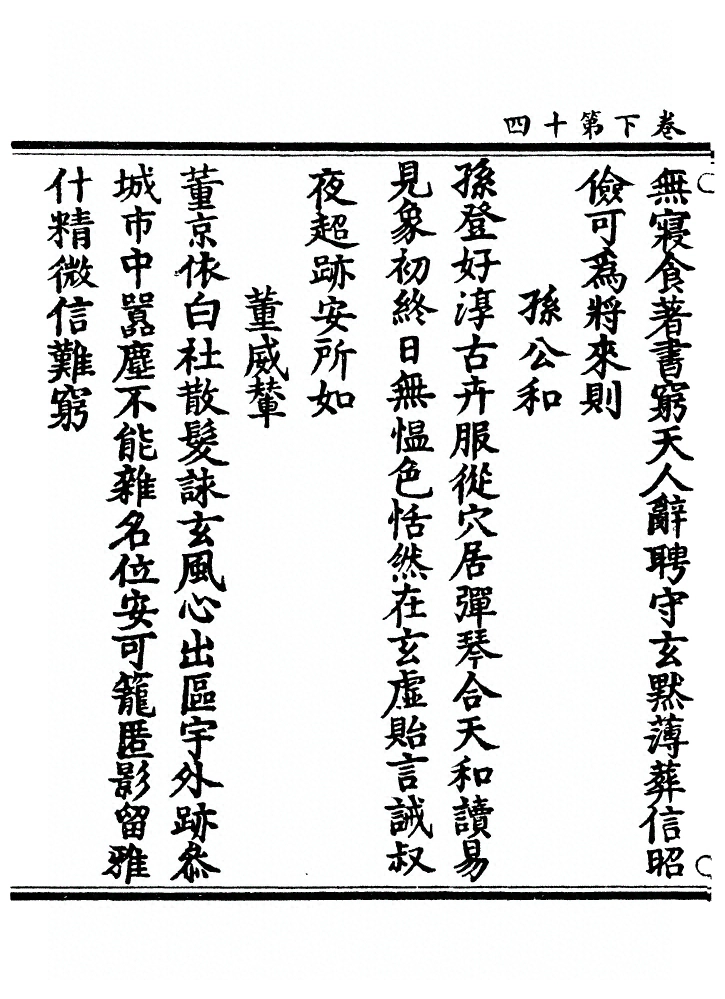 卷下第十四
無寢食著書窮天人辭聘守玄默薄葬信昭
儉可為將來則
孫公和
孫登好淳古卉服從穴居彈琴合天和讀易
見象初終日無慍色恬然在玄虛貽言誡叔
夜超跡安所如
董威輦
董京依白社散髮詠玄風心出區宇外跡叅
城市中囂塵不能雜名位安可籠匿影留雅
什精微信難窮